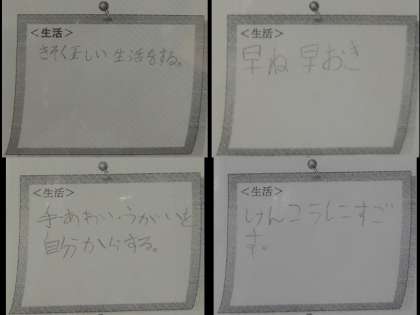 <生活>
きそく正しい生活をする。
<生活>
早ね早おき
<生活>
手あらい・うがいを
自分からする。
<生活>
けんこうにすご
す。